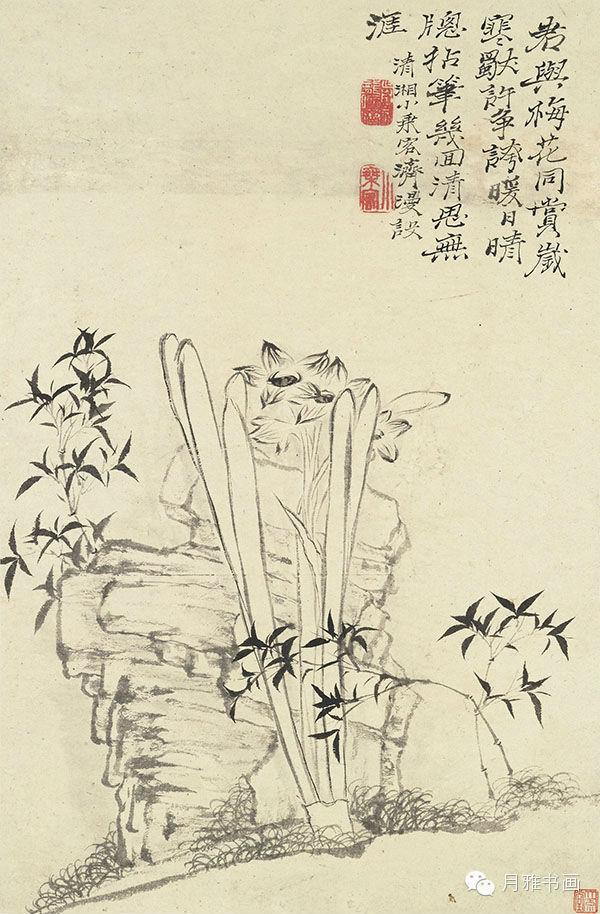 君與梅花同賞歲
寒獸許爭誇暖日晴
窻拈筆幾回清思無
涯
清湘小乘客濟漫設
月雅书画